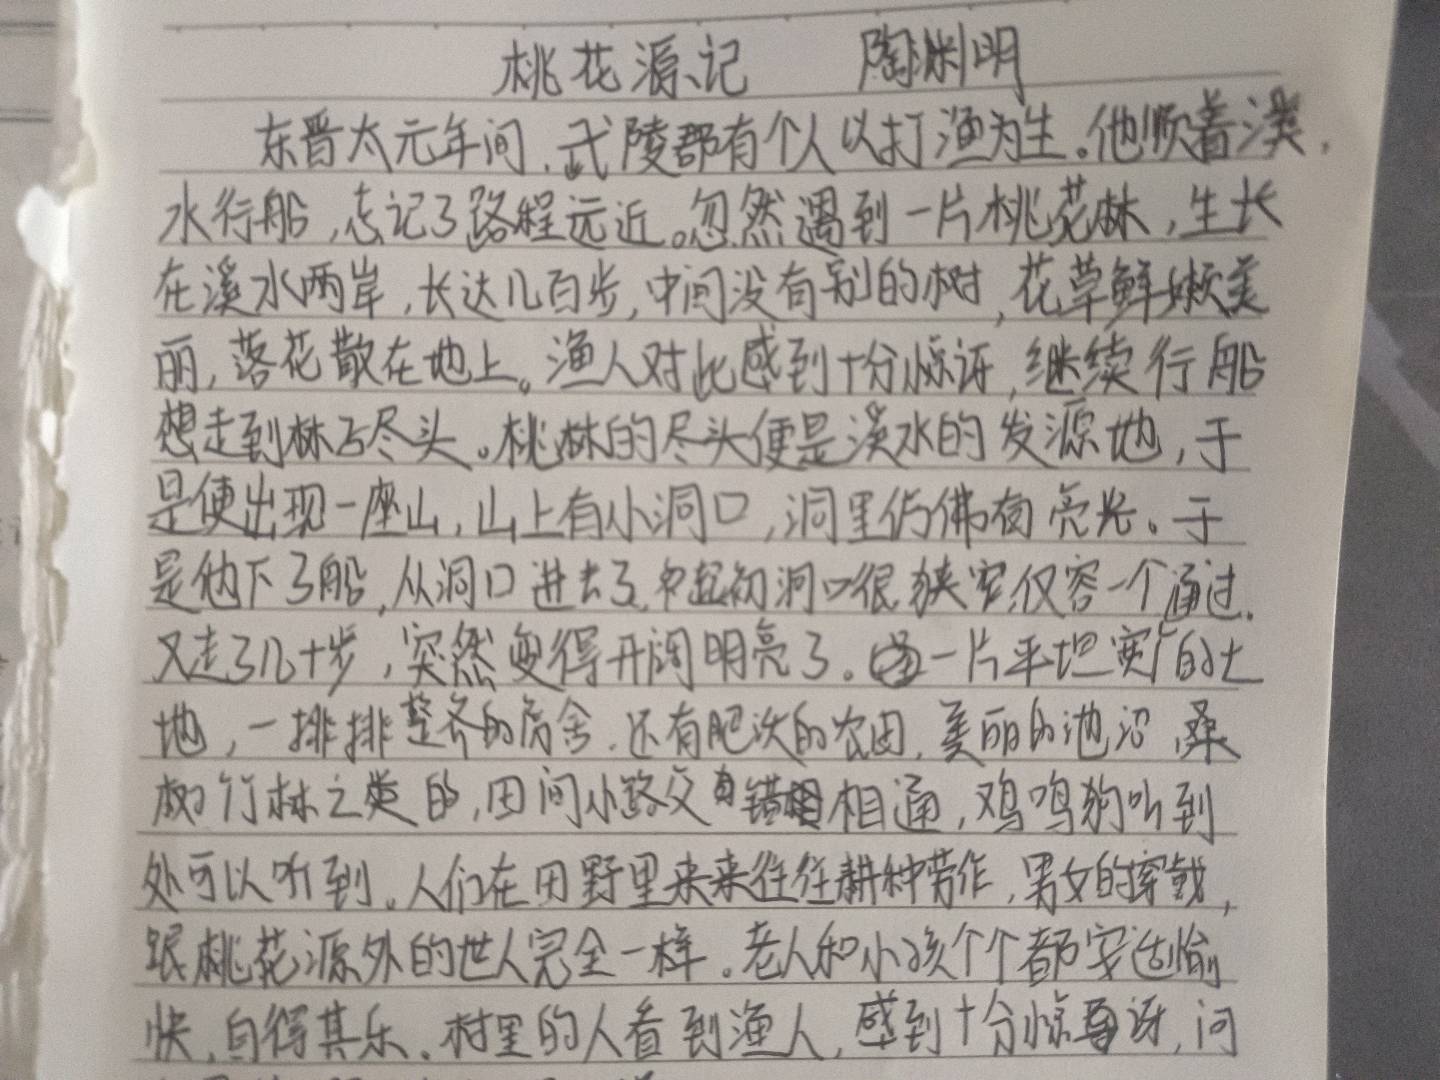 桃花源记 陶渊明
东晋太元年间,武陵郡有个人以打渔为生。他顺着溪,
水行船,忘记了路程远近。忽然遇到一片桃花林,生长
在溪水两岸,长达几百步,中间没有别的树,花草鲜嫩美
丽,落花散在地上。渔人对此感到十分惊讶,继续行船
想走到林子尽头。桃林的尽头便是溪水的发源地,于
是便出现一座山,山上有小洞口,洞里仿佛有亮光。于
是他下了船,从洞口进去了,起初洞口很狭窄,仅容一个通过.
又走了几十步,突然变得开阔明亮了。一片平坦宽广的土
地,一排排整齐的房舍.还有肥沃的农田,美丽的池沼,桑
树竹林之类的,田间小路交错相通,鸡鸣狗叫到
处可以听到。人们在田野里来来往往耕种劳作,男女的穿戴,
跟桃花源外的世人完全一样。老人和小孩个个都安适愉
快,自得其乐。村里的人看到渔人,感到十分惊讶,问